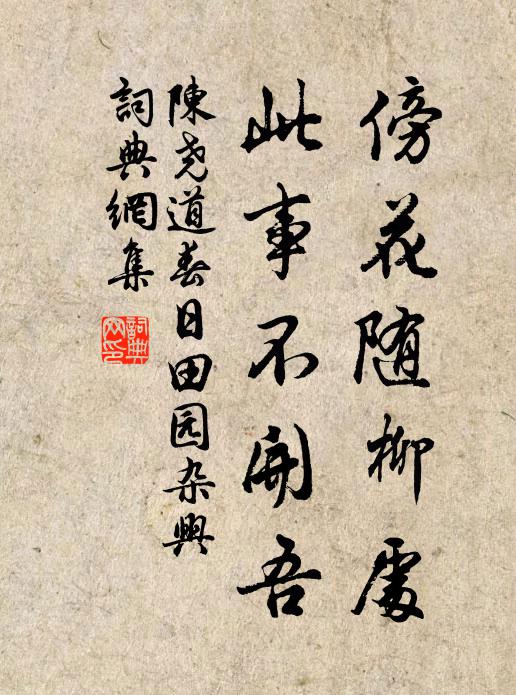 傍花随柳處
此事不開吾
陳尧道春日田园杂興
詞典網集
詞典網印